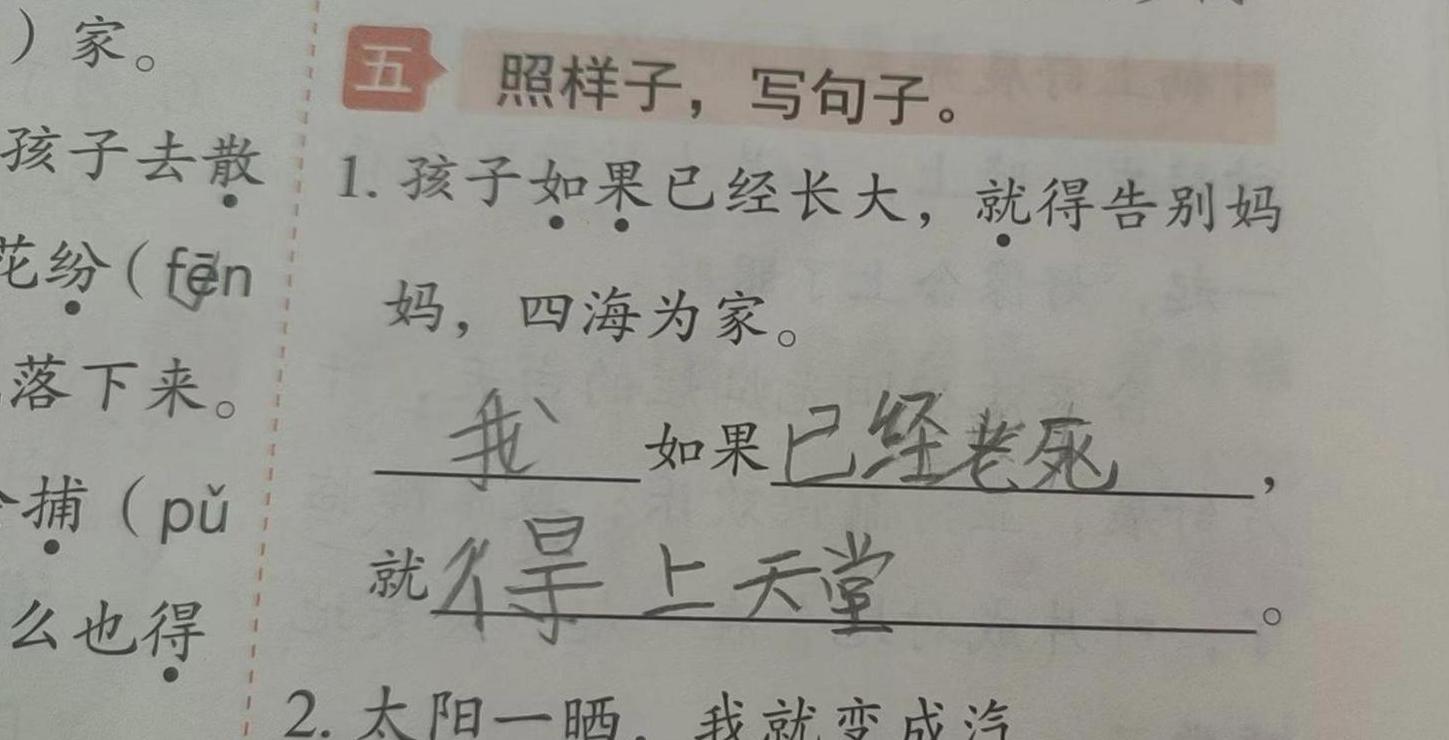 ）家。
孩子去散
花纷（fēn
落下来。
捕（pǔ
么也得
五 照样子，写句子。
1. 孩子如果已经长大，就得告别妈
妈，四海为家。
我如果已经老死，
就得上天堂。
2. 太阳一晒，我就变成汽